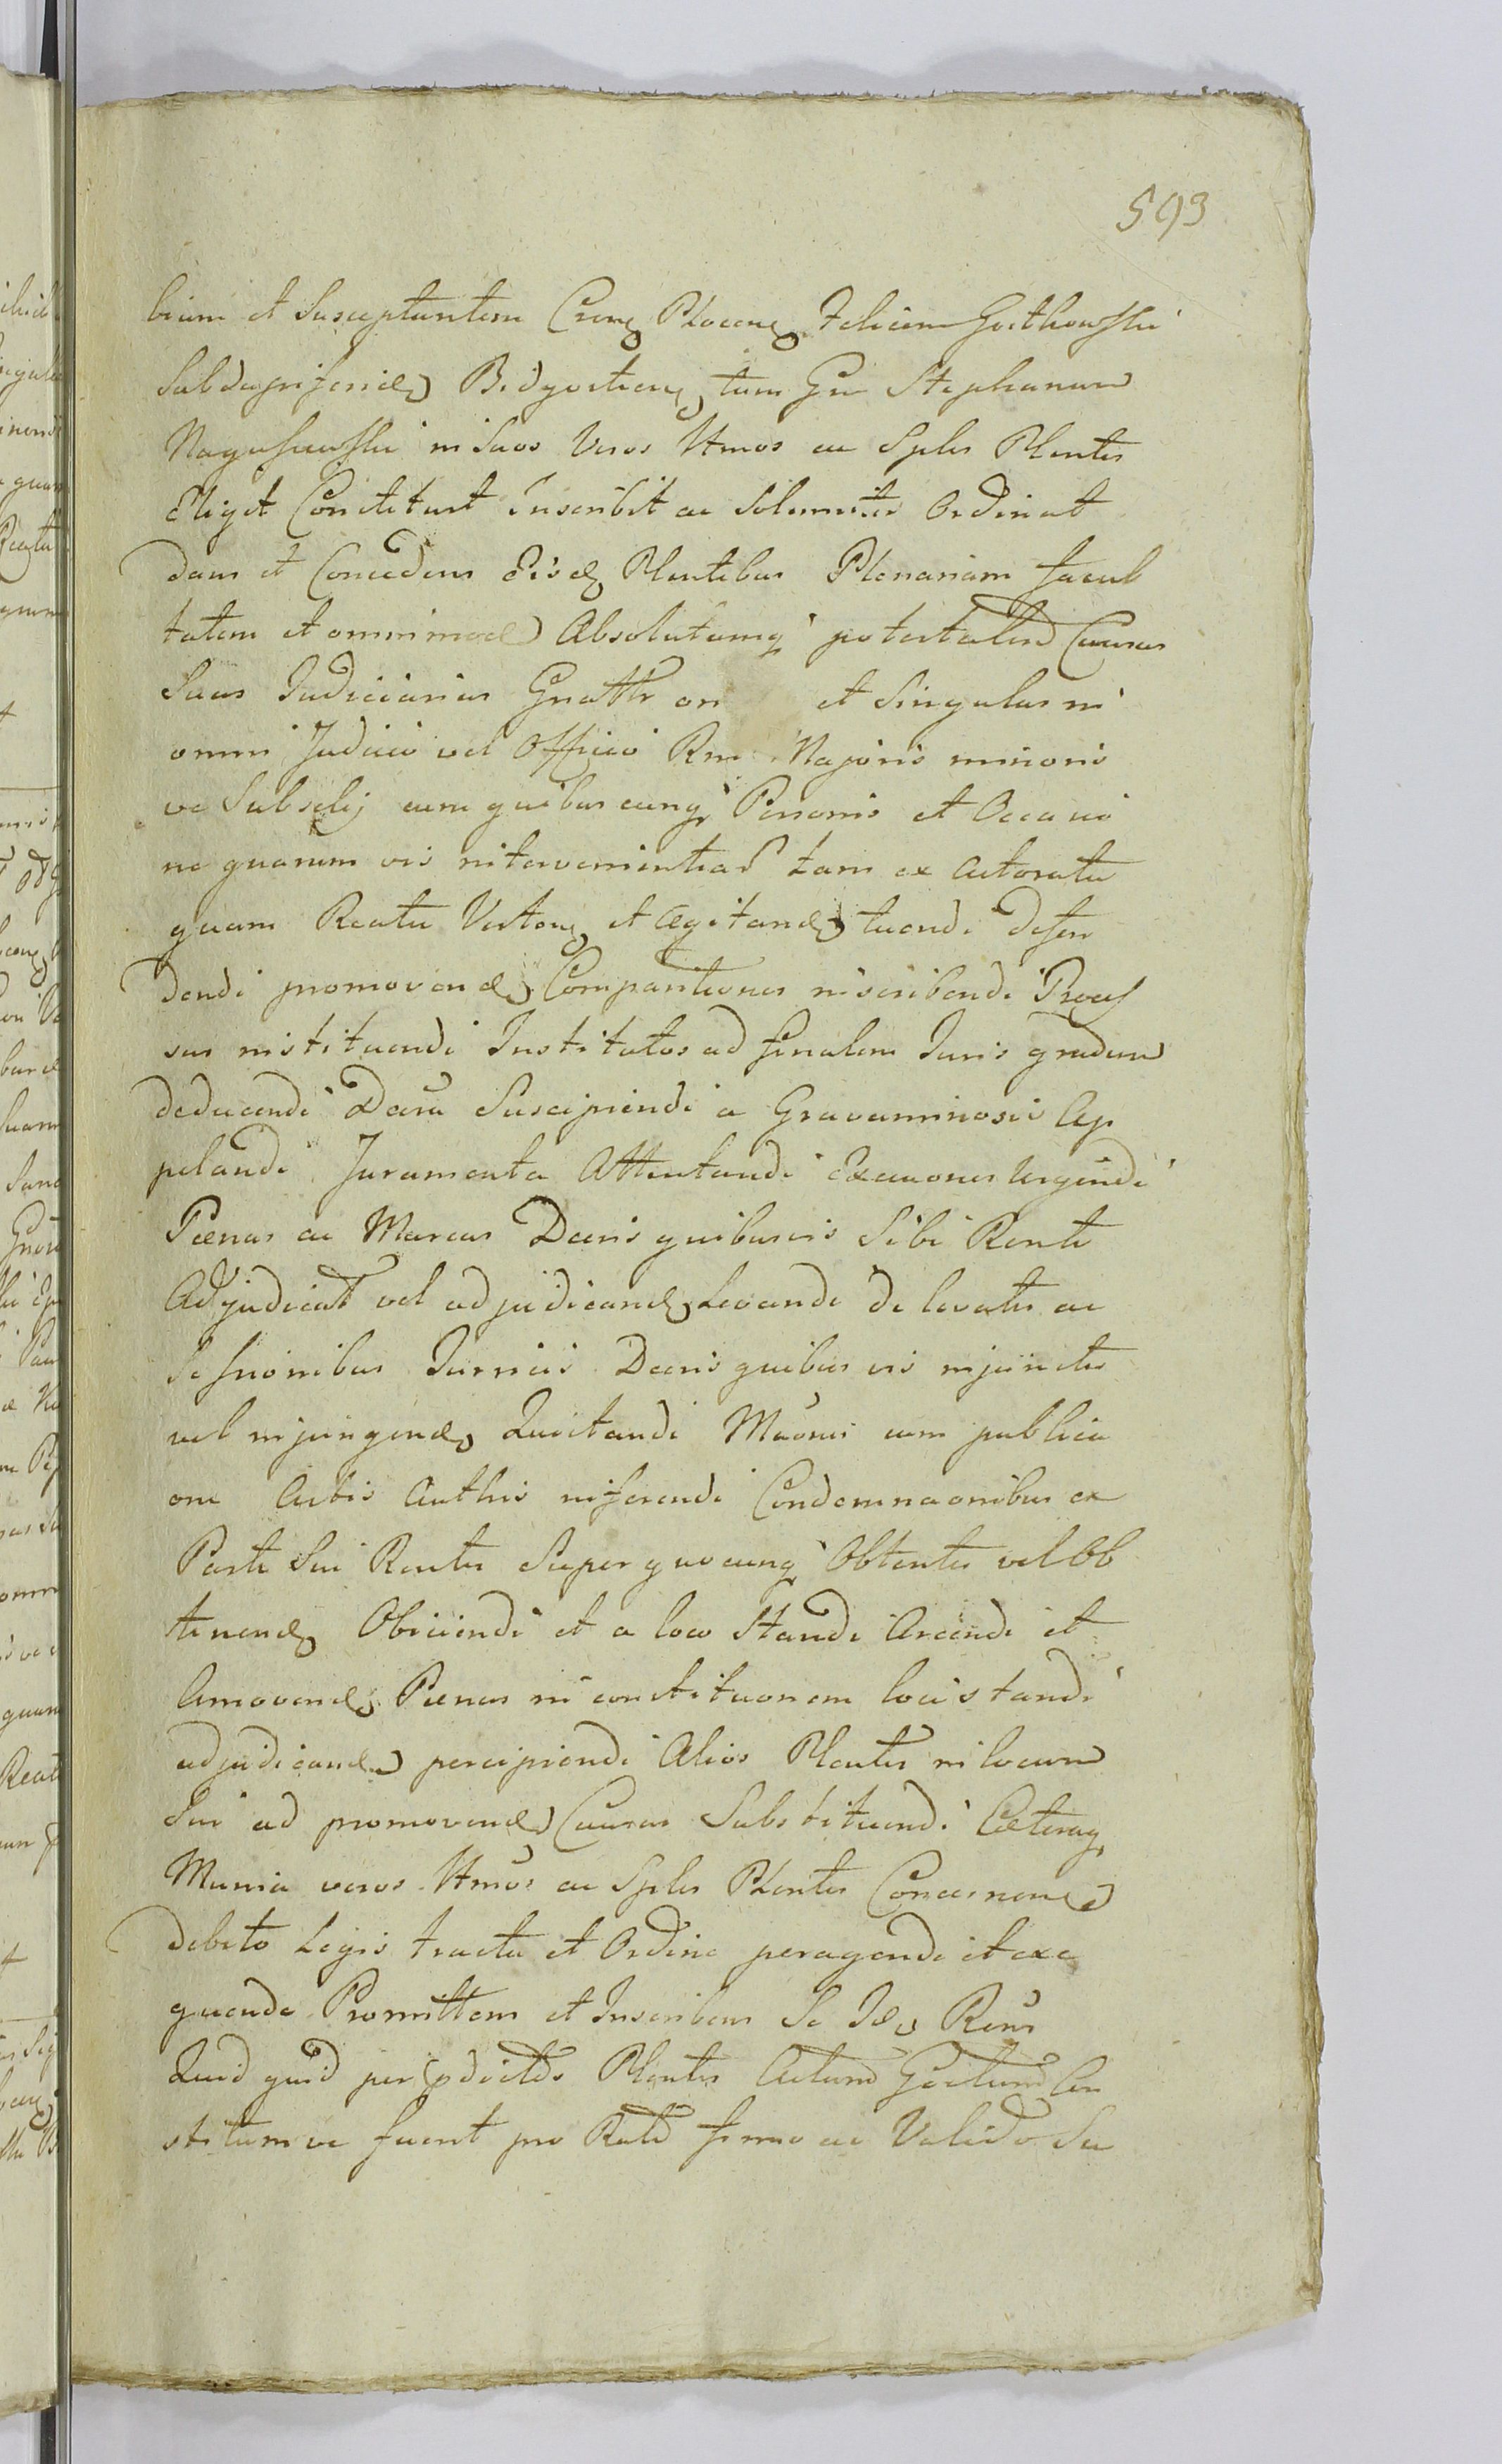 593
bium et Susceptantem Cren Plocen Felicem Gosthowski
Subdapiferid Bidgostien, tum Gn Stephanum
Nagurzewski in Suos Veros Ltmos ac Sples Plentes
Eligit Constituit Inscribit ac Solemniter Ordinat
dans et Concedens Eisd Plentibus Plenariam facul
tatem et omnimod Absolutamq potestatem Causas
Suas Judiciarias Gnatlr on et Singulas in
omni Judicio vel Officio Rni Majoris minoris
ve Subselij cum quibuscunq Personis et Occasio
ne quarum vis intervenientias tam ex Actoratu
quam Reatu Verten et Agitand tuendi defen
dendi promovend Comparitiones inscribendi Process
sus instituendi Institutos ad finalem Juris gradum
deducendi Decra Suscipiendi a Gravaminosis Ap
pelandi Juramenta Attentandi Exauones Urgendi
Pænas ac Marcas Decris quibusvis Sibi Renti
Adjudicat vel adjudicand Levandi de levatis ac
Sessionibus Turricis Decris quibus vis injunctis
vel injungend Quietandi Muonis cum publica
one Actis Authis inferendi Condemnaonibus ex
Parte Sui Rentis Super quocunq Obtentis vel Ob
tinend Obiiciendi et a loco Standi Arcendi et
Amovend Pænas in constituonem loci standi
adjudicand percipiendi Alios Plentes in locum
Sui ad promovend Causas Substituendi Cæteraq
Munia veros Ltmos ac Sples Plentes Concernen
debito Legis tractu et Ordine peragendi et exe
quendi Promittens et Inscribens Se Id Rens
Quid quid per pdictos Plentes Actum Gestum Con
stitumve fuerit pro Rato firmo ac Valido Se